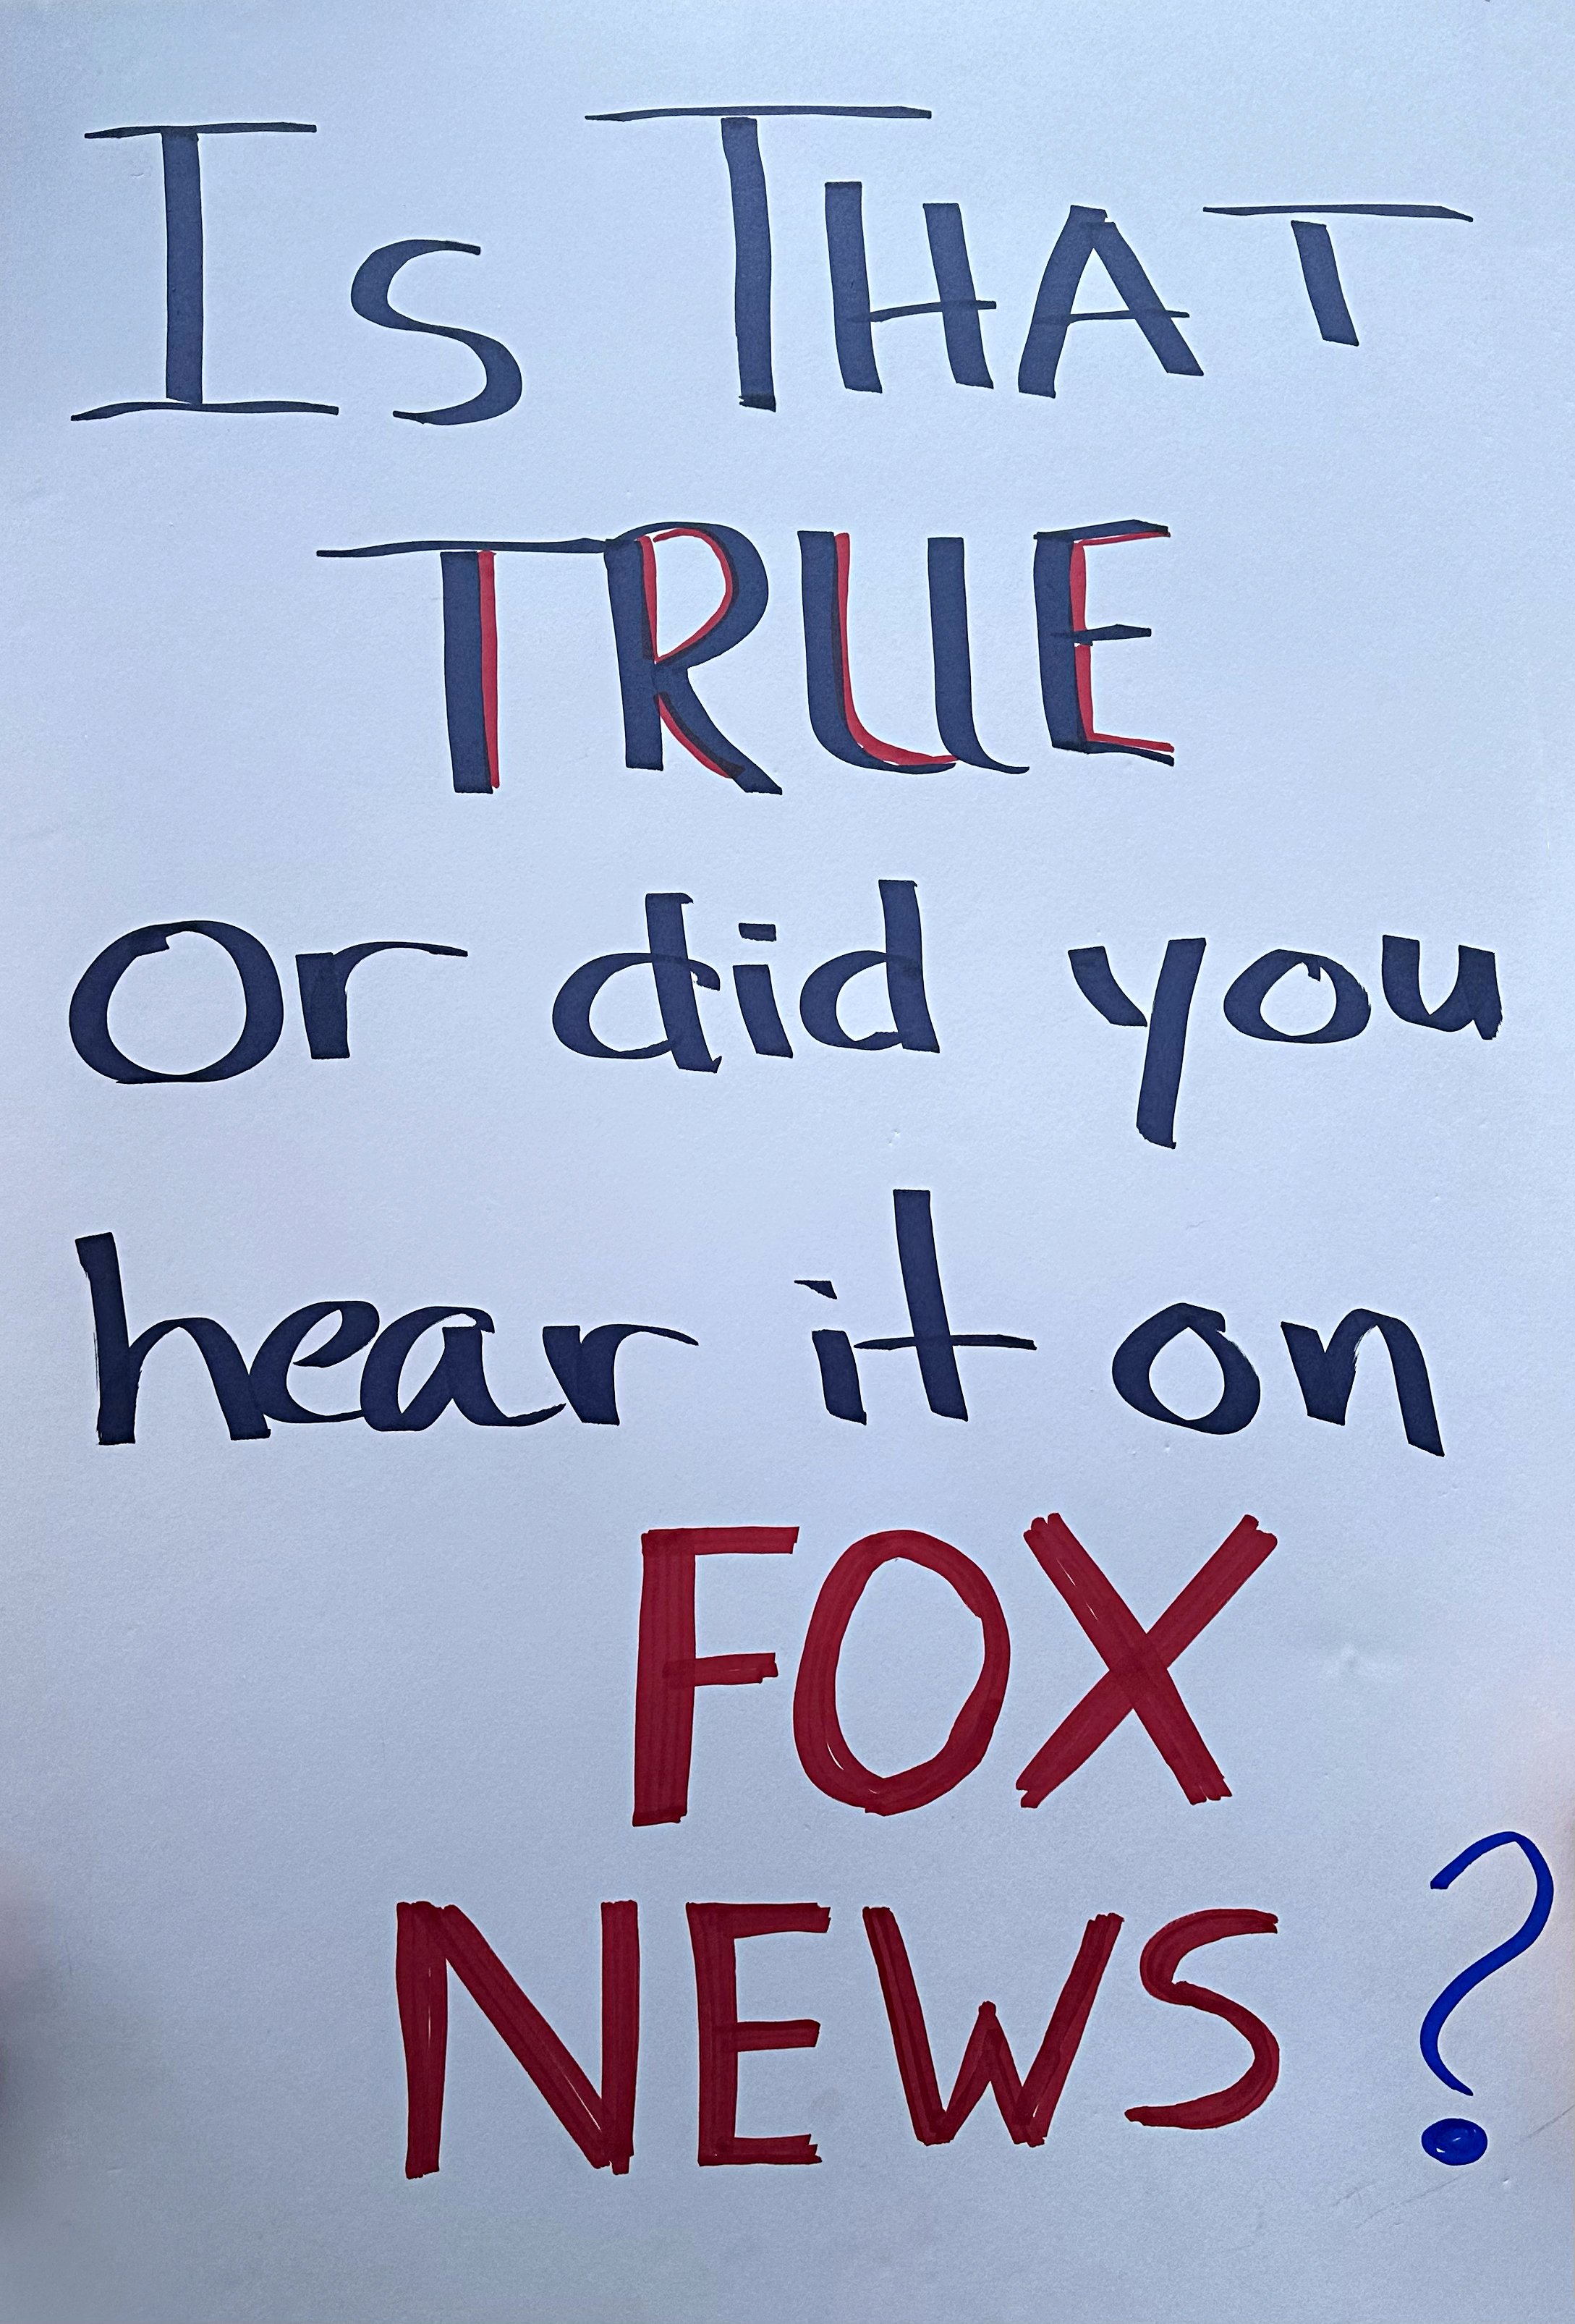 Is THAT
TRUE
Or did you
hear it on
FOX
NEWS?